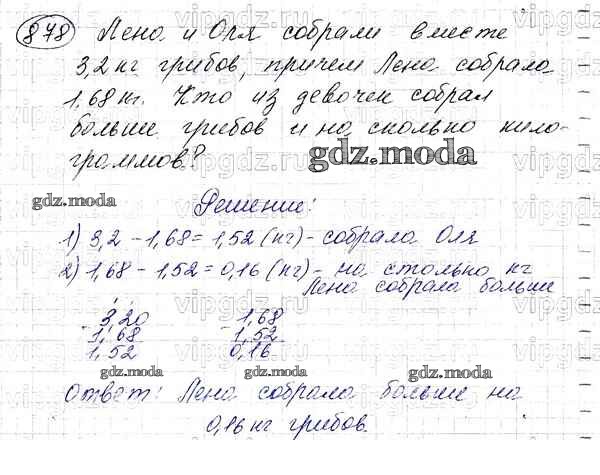 878 Лена и Оля собрали вместе
3,2 кг грибов, причем Лена собрала
1,68 кг. Кто из девочек собрал
больше грибов и на сколько кило-
граммов?
gdz.moda
gdz.moda
Решение:
1) 3,2 - 1,68 = 1,52 (кг) - собрала Оля
2) 1,68 - 1,52 = 0,16 (кг) - на столько кг
Лена собрала больше
- 3,20 - 1,68
1,68 1,52
1,52 0,16
gdz.moda gdz.moda
Ответ: Лена собрала больше на
0,16 кг грибов.
vipgdz.ru